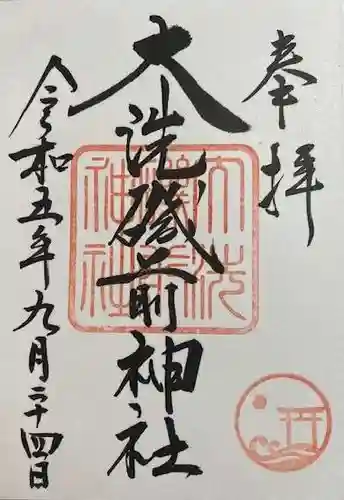 奉拝
大洗磯前神社
令和五年九月二十四日
大洗
磯前
神社